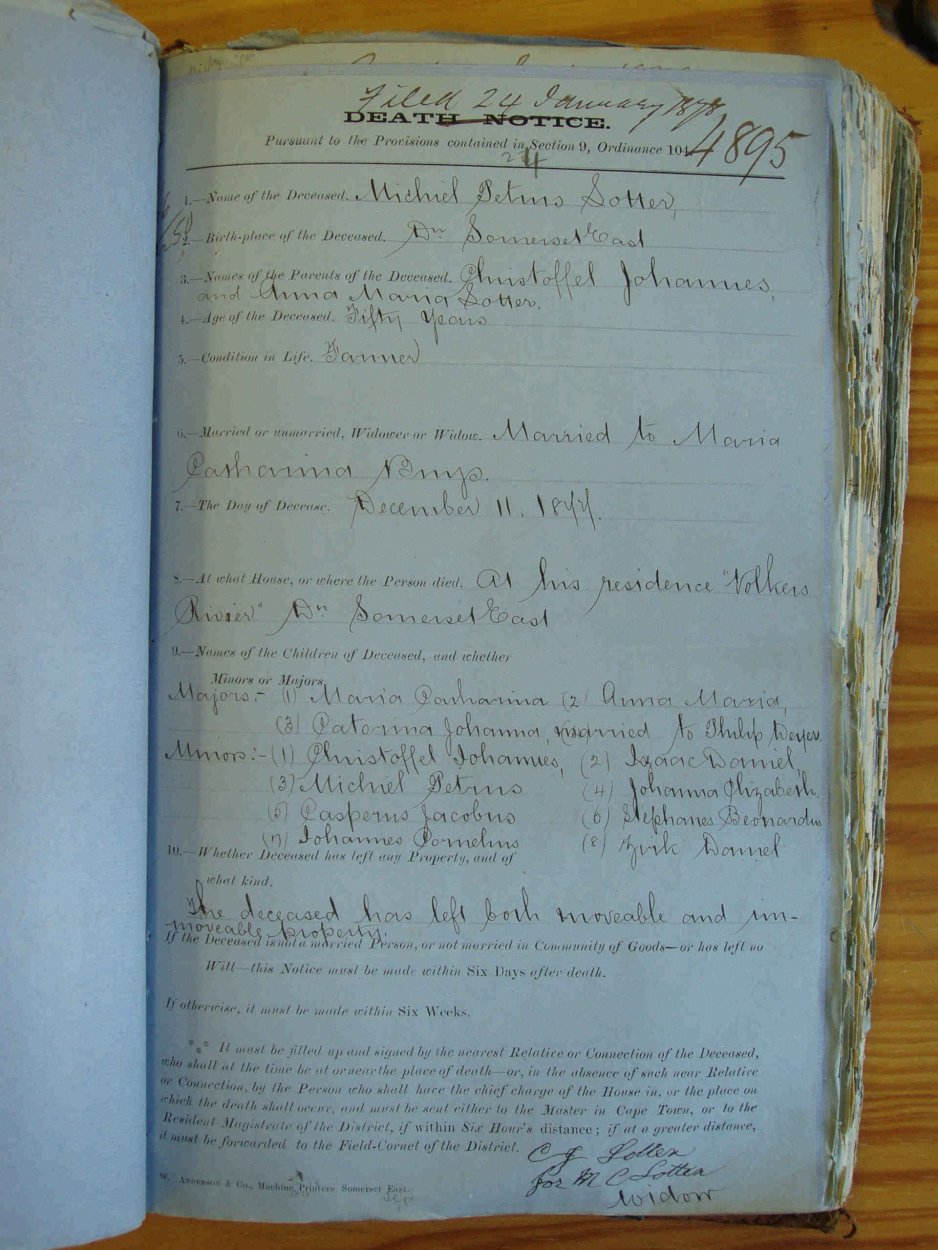 Filed 24 January 1878
DEATH NOTICE.
Pursuant to the Provisions contained in Section 9, Ordinance 104.
4895
24
1.—Name of the Deceased. Michiel Petrus Lotter,
2.—Birth-place of the Deceased. Dn Somerset East
3.—Names of the Parents of the Deceased. Christoffel Johannes,
and Anna Maria Lotter.
4.—Age of the Deceased. Fifty Years
5.—Condition in Life. Farmer
6.—Married or unmarried, Widower or Widow. Married to Maria
Catharina Buys.
7.—The Day of Decease. December 11. 1877.
8.—At what House, or where the Person died. At his residence "Volkers
Rivier" Dn Somerset East
9.—Names of the Children of Deceased, and whether
Minors or Majors.
Majors:- (1) Maria Catharina (2) Anna Maria,
(3) Catorina Johanna, married to Philip
Minors:- (1) Christoffel Johannes, (2) Izaac Daniel,
(3) Michiel Petrus (4) Johanna Elizabeth,
(5) Casperus Jacobus (6) Stephanes Beonardus
(7) Johannes Cornelius (8) Zirk Daniel
10.—Whether Deceased has left any Property, and of
what kind.
The deceased has left both moveable and im-
moveable property.
If the Deceased is not a married Person, or not married in Community of Goods—or has left no
Will—this Notice must be made within Six Days after death.
If otherwise, it must be made within Six Weeks.
It must be filled up and signed by the nearest Relative or Connection of the Deceased,
who shall at the time be at or near the place of death—or, in the absence of such near Relative
or Connection, by the Person who shall have the chief charge of the House in, or the place on
which the death shall occur, and must be sent either to the Master in Cape Town, or to the
Resident Magistrate of the District, if within Six Hour's distance; if at a greater distance,
it must be forwarded to the Field-Cornet of the District.
C J Lotter
for M C Lotter
Widow
W. Anderson & Co., Machine Printers Somerset East.